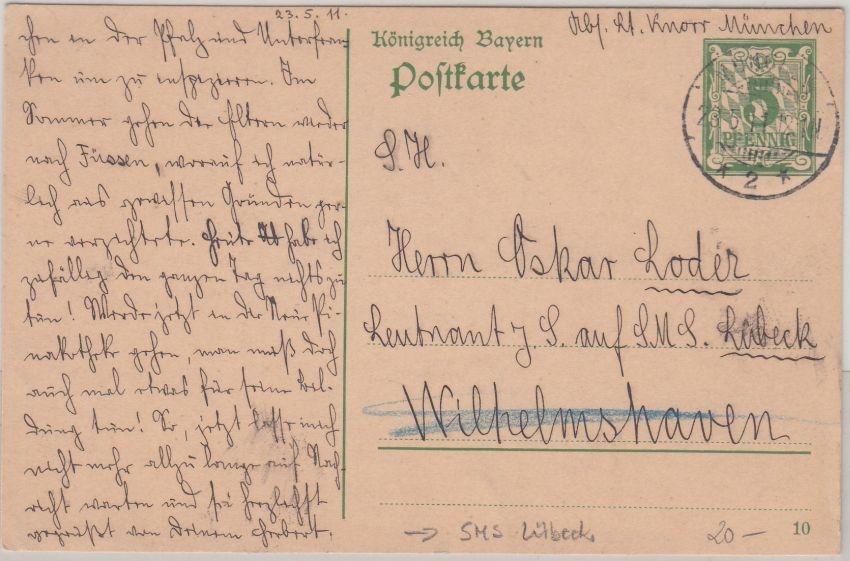 23.5.11.
chen in der Pfalz und Unterfran-
ken um zu inspizieren. Im
Sommer gehen die Eltern wieder
nach Füssen, worauf ich natür-
lich aus gewissen Gründen ger-
ne verzichtete. Heute habe ich
zufällig den ganzen Tag nichts zu
tun! Werde jetzt in die Neue Pi-
nakothek gehen, man muß doch
auch mal etwas für seine Bil-
dung tun! So, jetzt lasse mich
nicht mehr allzu lange auf Nach-
richt warten und sei herzlichst
gegrüßt von Deinem Herbert.
Abs. Lt. Knorr München
Königreich Bayern
Postkarte
5
PFENNIG
* 2 *
S.H.
Herrn Oskar Loder
Leutnant z. S. auf S.M.S. Lübeck
Wilhelmshaven
→ SMS Lübeck
20 —
10